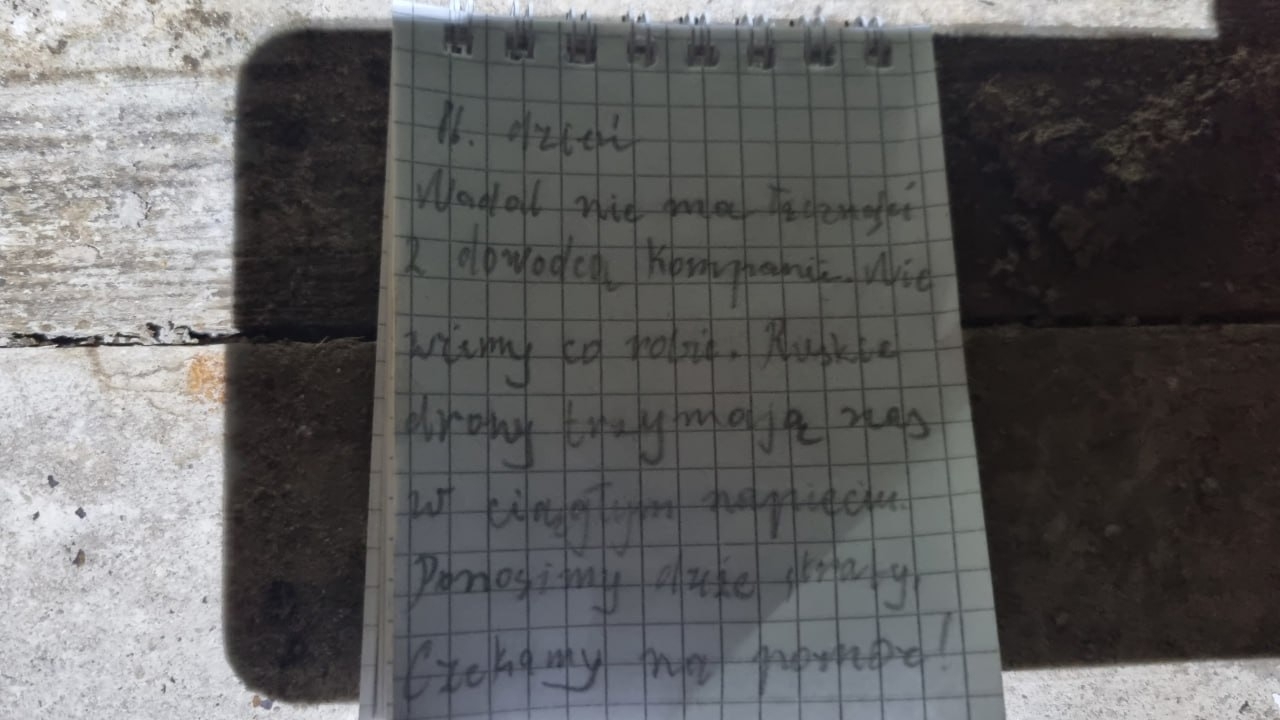 11. dzień
Nadal nie ma łączności
z dowódcą kompanii. Nie
wiemy co robić. Ruskie
drony trzymają nas
w ciągłym napięciu.
Ponosimy duże straty.
Czekamy na pomoc!